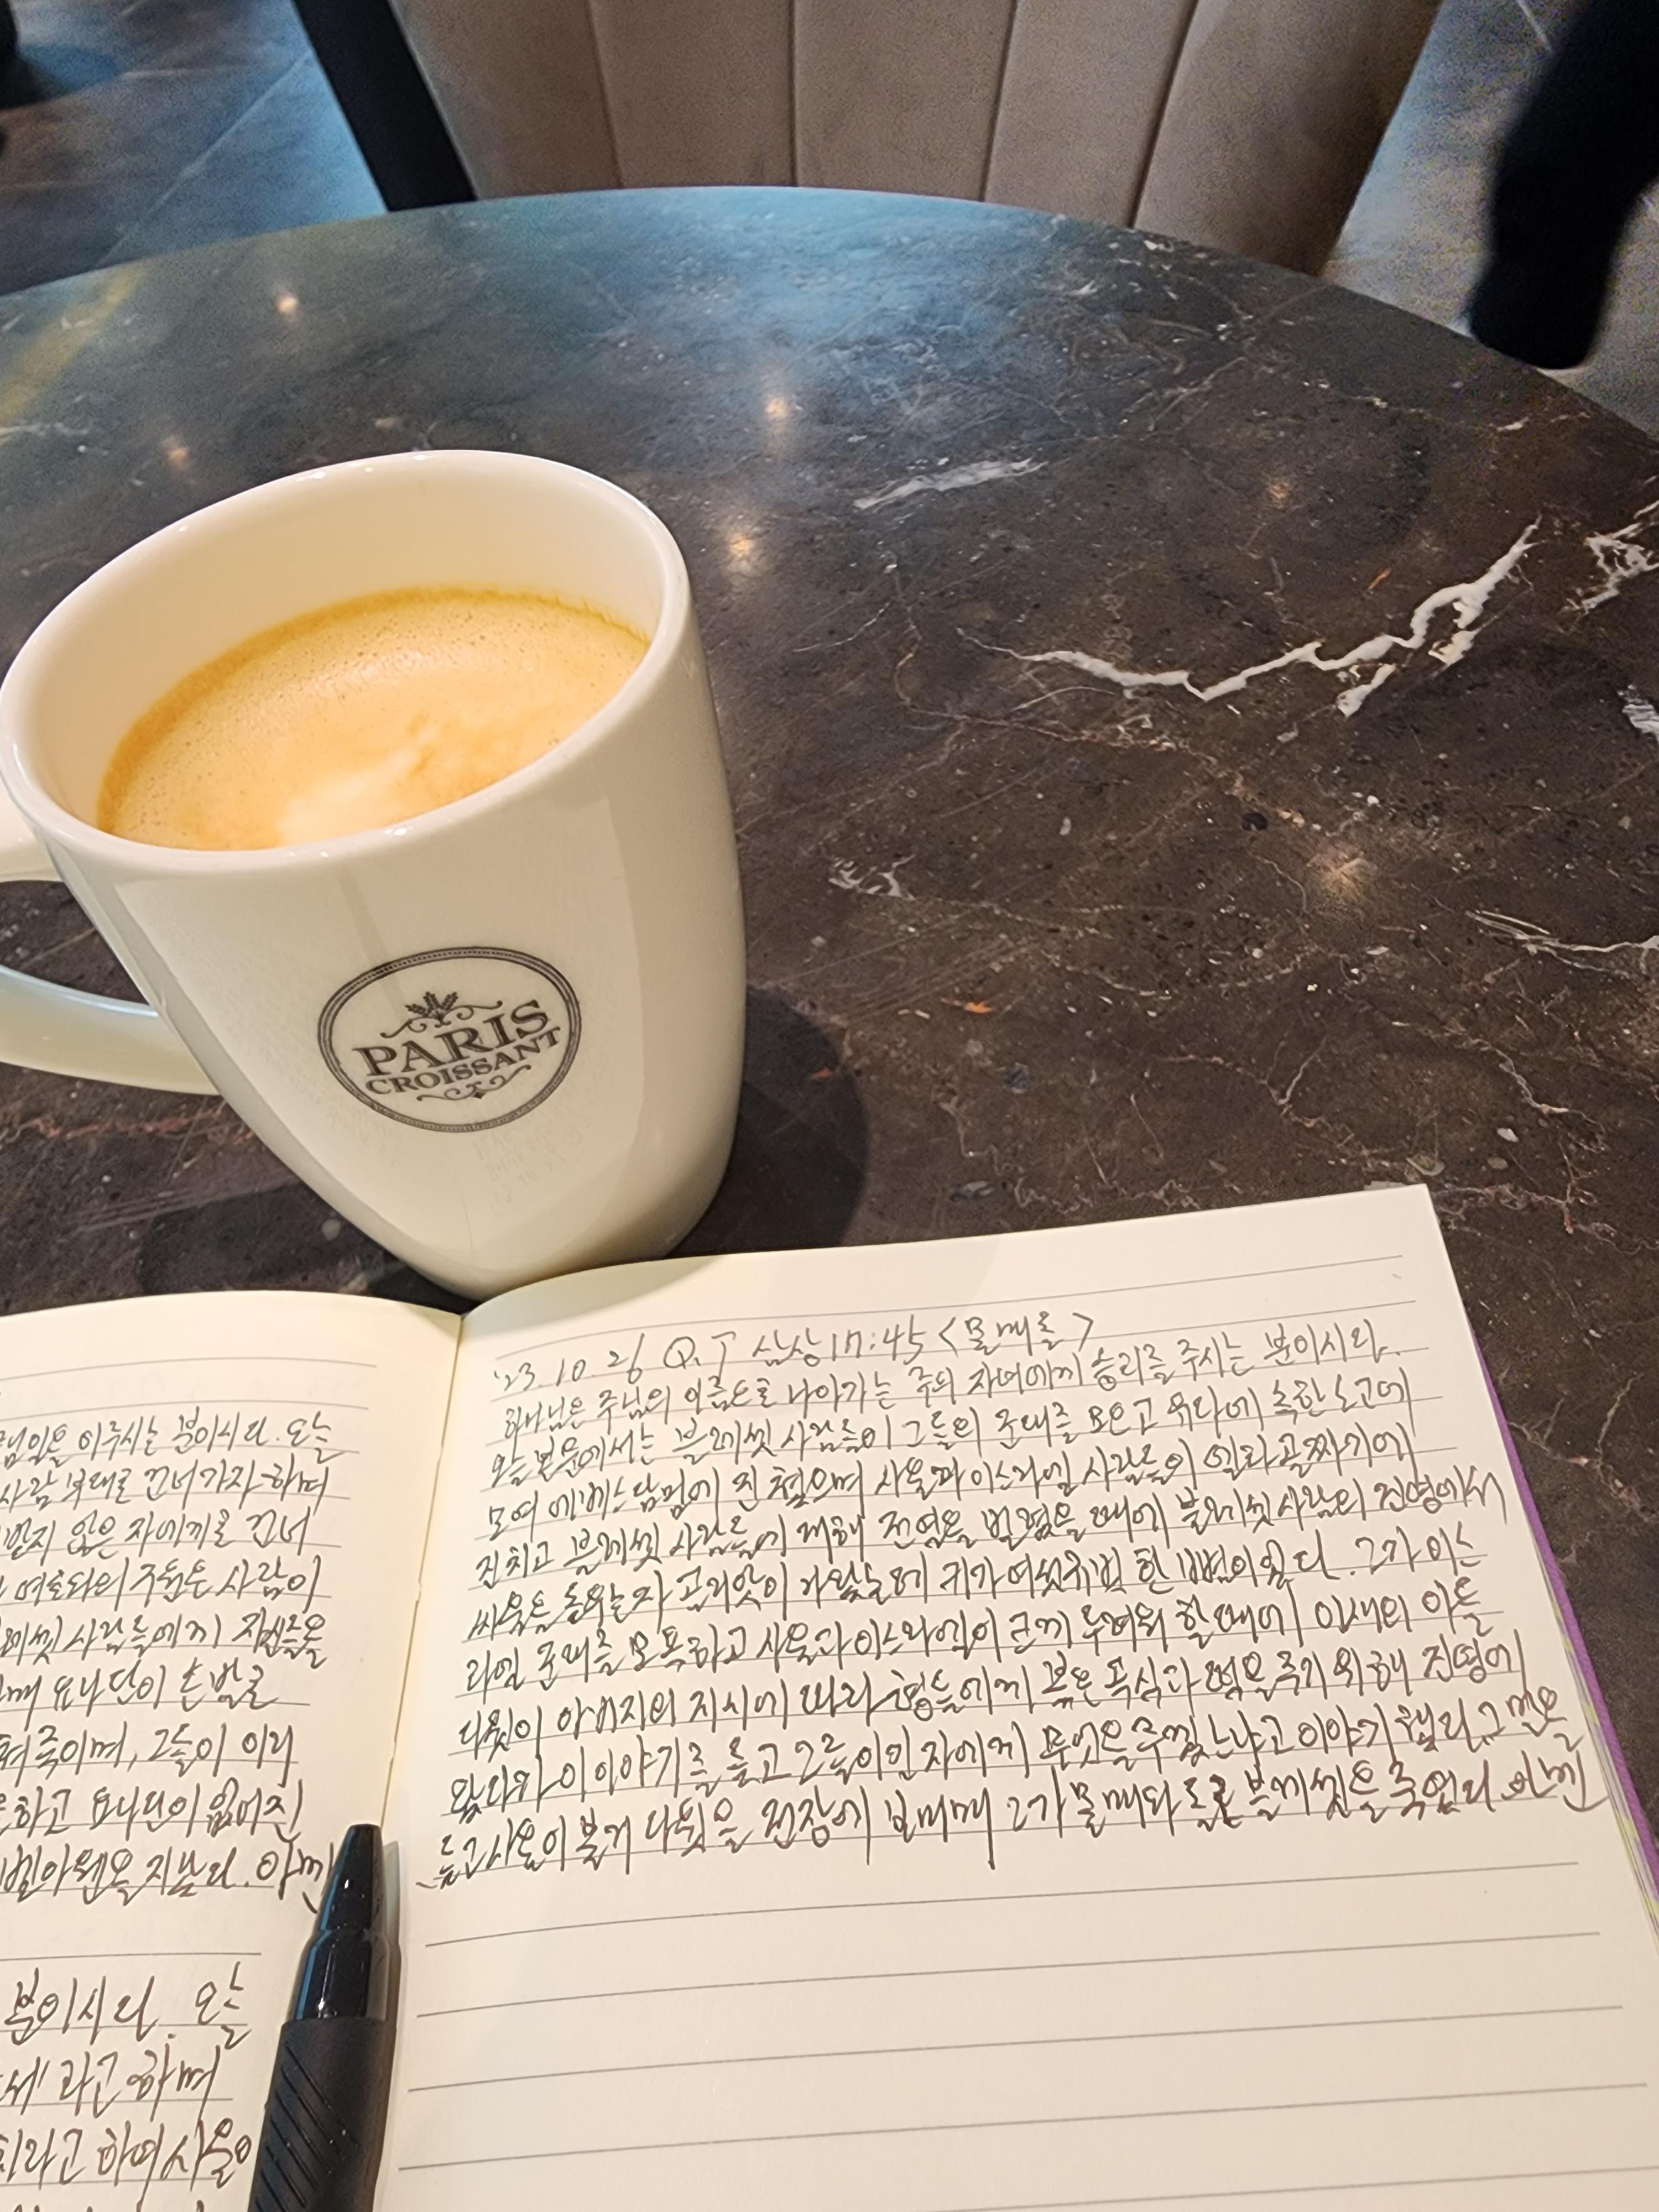 PARIS
CROISSANT
'23. 10. 26 Q.T 삼상 17:45 <물매로>
하나님은 주님의 이름으로 나아가는 주의 자녀에게 승리를 주시는 분이시라.
오늘 본문에서는 블레셋 사람들이 그들의 군대를 모으고 유다에 속한 소고에
모여 에베스담밈에 진 쳤으며 사울과 이스라엘 사람들이 엘라 골짜기에
진치고 블레셋 사람들에 대해 전열을 벌였을 때에 블레셋 사람의 진영에서
싸움을 돋우는 자 골리앗이 나왔는데 키가 여섯 규빗 한 뼘이었다. 그가 이스
라엘 군대를 모욕하고 사울과 이스라엘이 크게 두려워 할 때에 이새의 아들
다윗이 아버지의 지시에 따라 형들에게 볶은 곡식과 떡을 주기 위해 진영에
왔다가 이 이야기를 듣고 그를 이인 자에게 무엇을 주겠느냐고 이야기 했다. 그 말을
듣고 사울이 불러 다윗을 전장에 보내매 그가 물매와 돌로 블레셋을 죽였다. 아멘
이루시는 분이시라. 오늘
사람 부대로 건너가자 하며
받지 않은 자에게로 건너
여호와의 구원은 사람이
블레셋 사람들에게
요나단이 손 발로
쳐죽이며, 그들이 이리
하고 요나단이
벧아웬을 지났다. 아멘
분이시라. 오늘
라고 하며
라고 하여 사울이